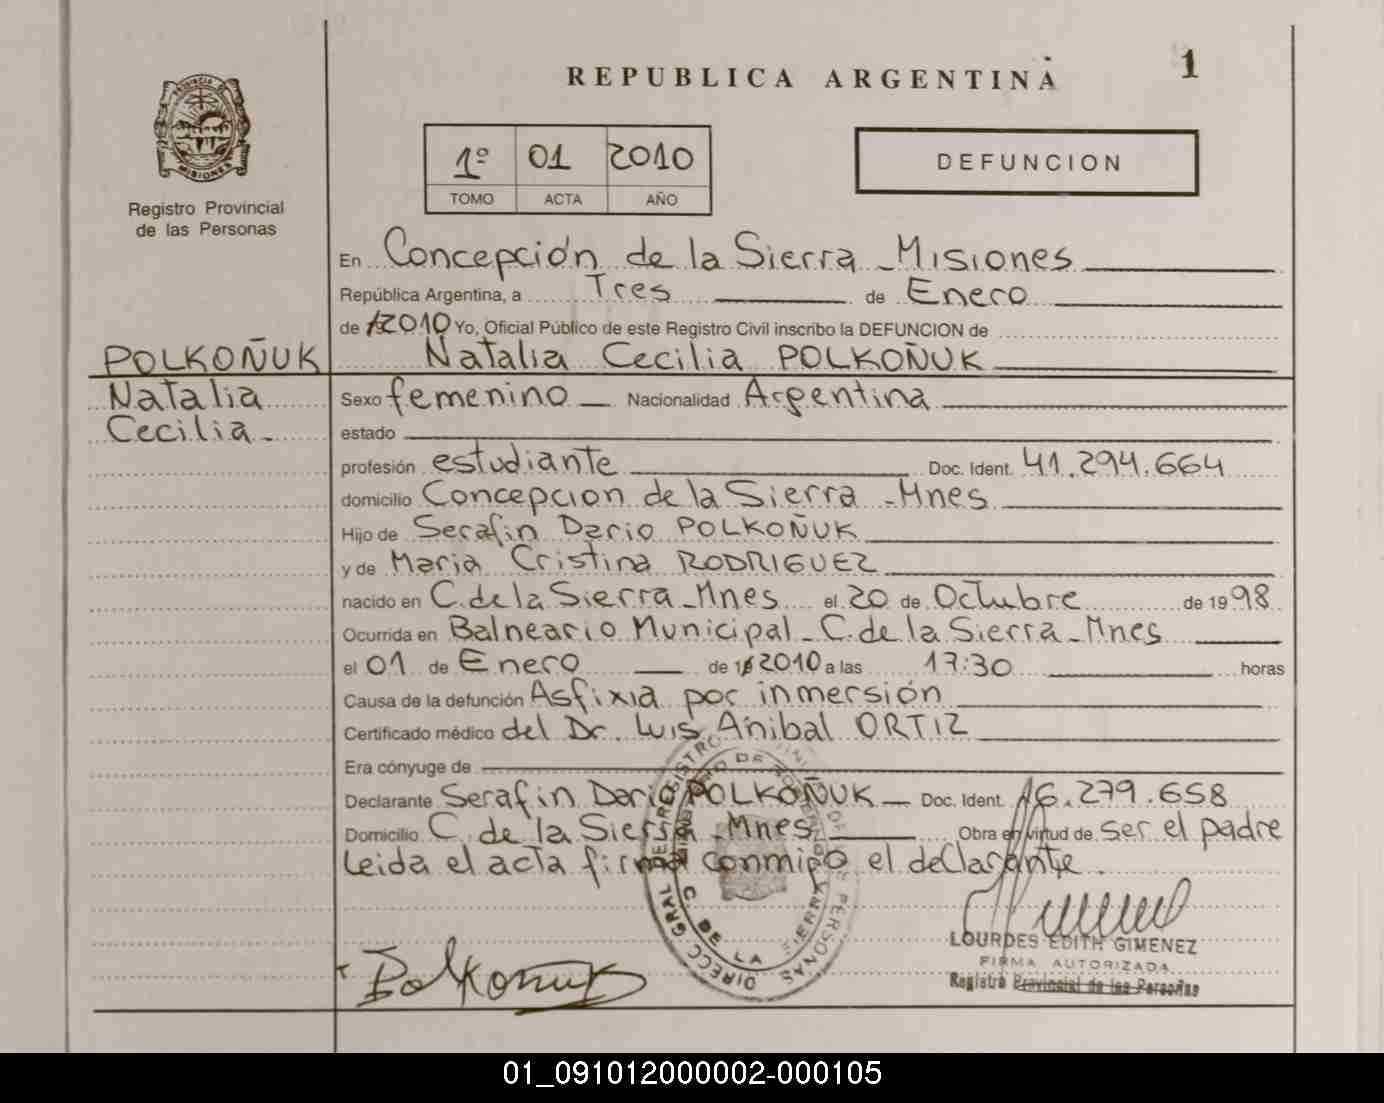 REPUBLICA ARGENTINA
1
Registro Provincial
de las Personas
1º 01 2010
TOMO ACTA AÑO
DEFUNCION
En Concepción de la Sierra - Misiones
República Argentina, a Tres de Enero
de 2010 Yo, Oficial Público de este Registro Civil inscribo la DEFUNCION de
POLKOÑUK Natalia Cecilia POLKOÑUK
Natalia Sexo femenino Nacionalidad Argentina
Cecilia - estado
profesión estudiante Doc. Ident. 41.294.664
domicilio Concepcion de la Sierra - Mnes
Hijo de Serafin Dario POLKOÑUK
y de Maria Cristina RODRIGUEZ
nacido en C. de la Sierra - Mnes el 20 de Octubre de 1998
Ocurrida en Balneario Municipal - C. de la Sierra - Mnes
el 01 de Enero de 2010 a las 17:30 horas
Causa de la defunción Asfixia por inmersión
Certificado médico del Dr. Luis Anibal ORTIZ
Era cónyuge de
Declarante Serafin Dario POLKOÑUK Doc. Ident. 16.279.658
Domicilio C. de la Sierra - Mnes Obra en virtud de ser el padre
Leida el acta firma conmigo el declarante.
DIRECC GRAL DEL REGISTRO DE LAS PERSONAS
C. DE LA SIERRA
Polkoñuk
LOURDES EDITH GIMENEZ
FIRMA AUTORIZADA
Registro Provincial de las Personas
PROVINCIA DE MISIONES
01_091012000002-000105